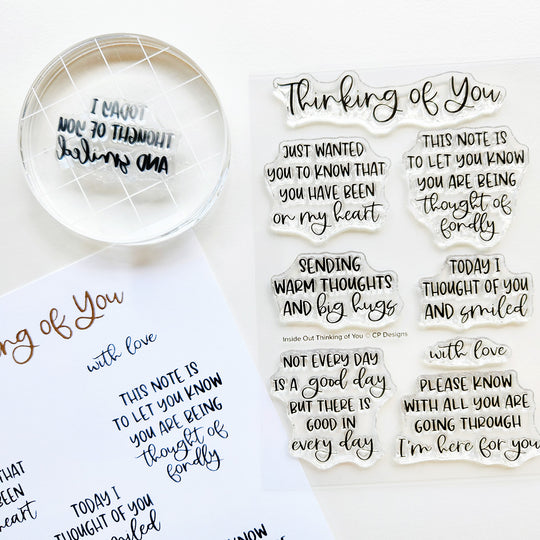 TODAY I
THOUGHT OF YOU
AND smiled
Thinking of You
JUST WANTED
YOU TO KNOW THAT
YOU HAVE BEEN
on my heart
THIS NOTE IS
TO LET YOU KNOW
YOU ARE BEING
thought of
fondly
SENDING
WARM THOUGHTS
AND big hugs
TODAY I
THOUGHT OF YOU
AND smiled
Inside Out Thinking of You © CP Designs
with love
NOT EVERY DAY
IS A good day
BUT THERE IS
GOOD IN
every day
PLEASE KNOW
WITH ALL YOU ARE
GOING THROUGH
I'm here for you
of You
with love
THIS NOTE IS
TO LET YOU KNOW
YOU ARE BEING
thought of
fondly
THAT
BEEN
heart
TODAY I
THOUGHT OF YOU
smiled
KNOW